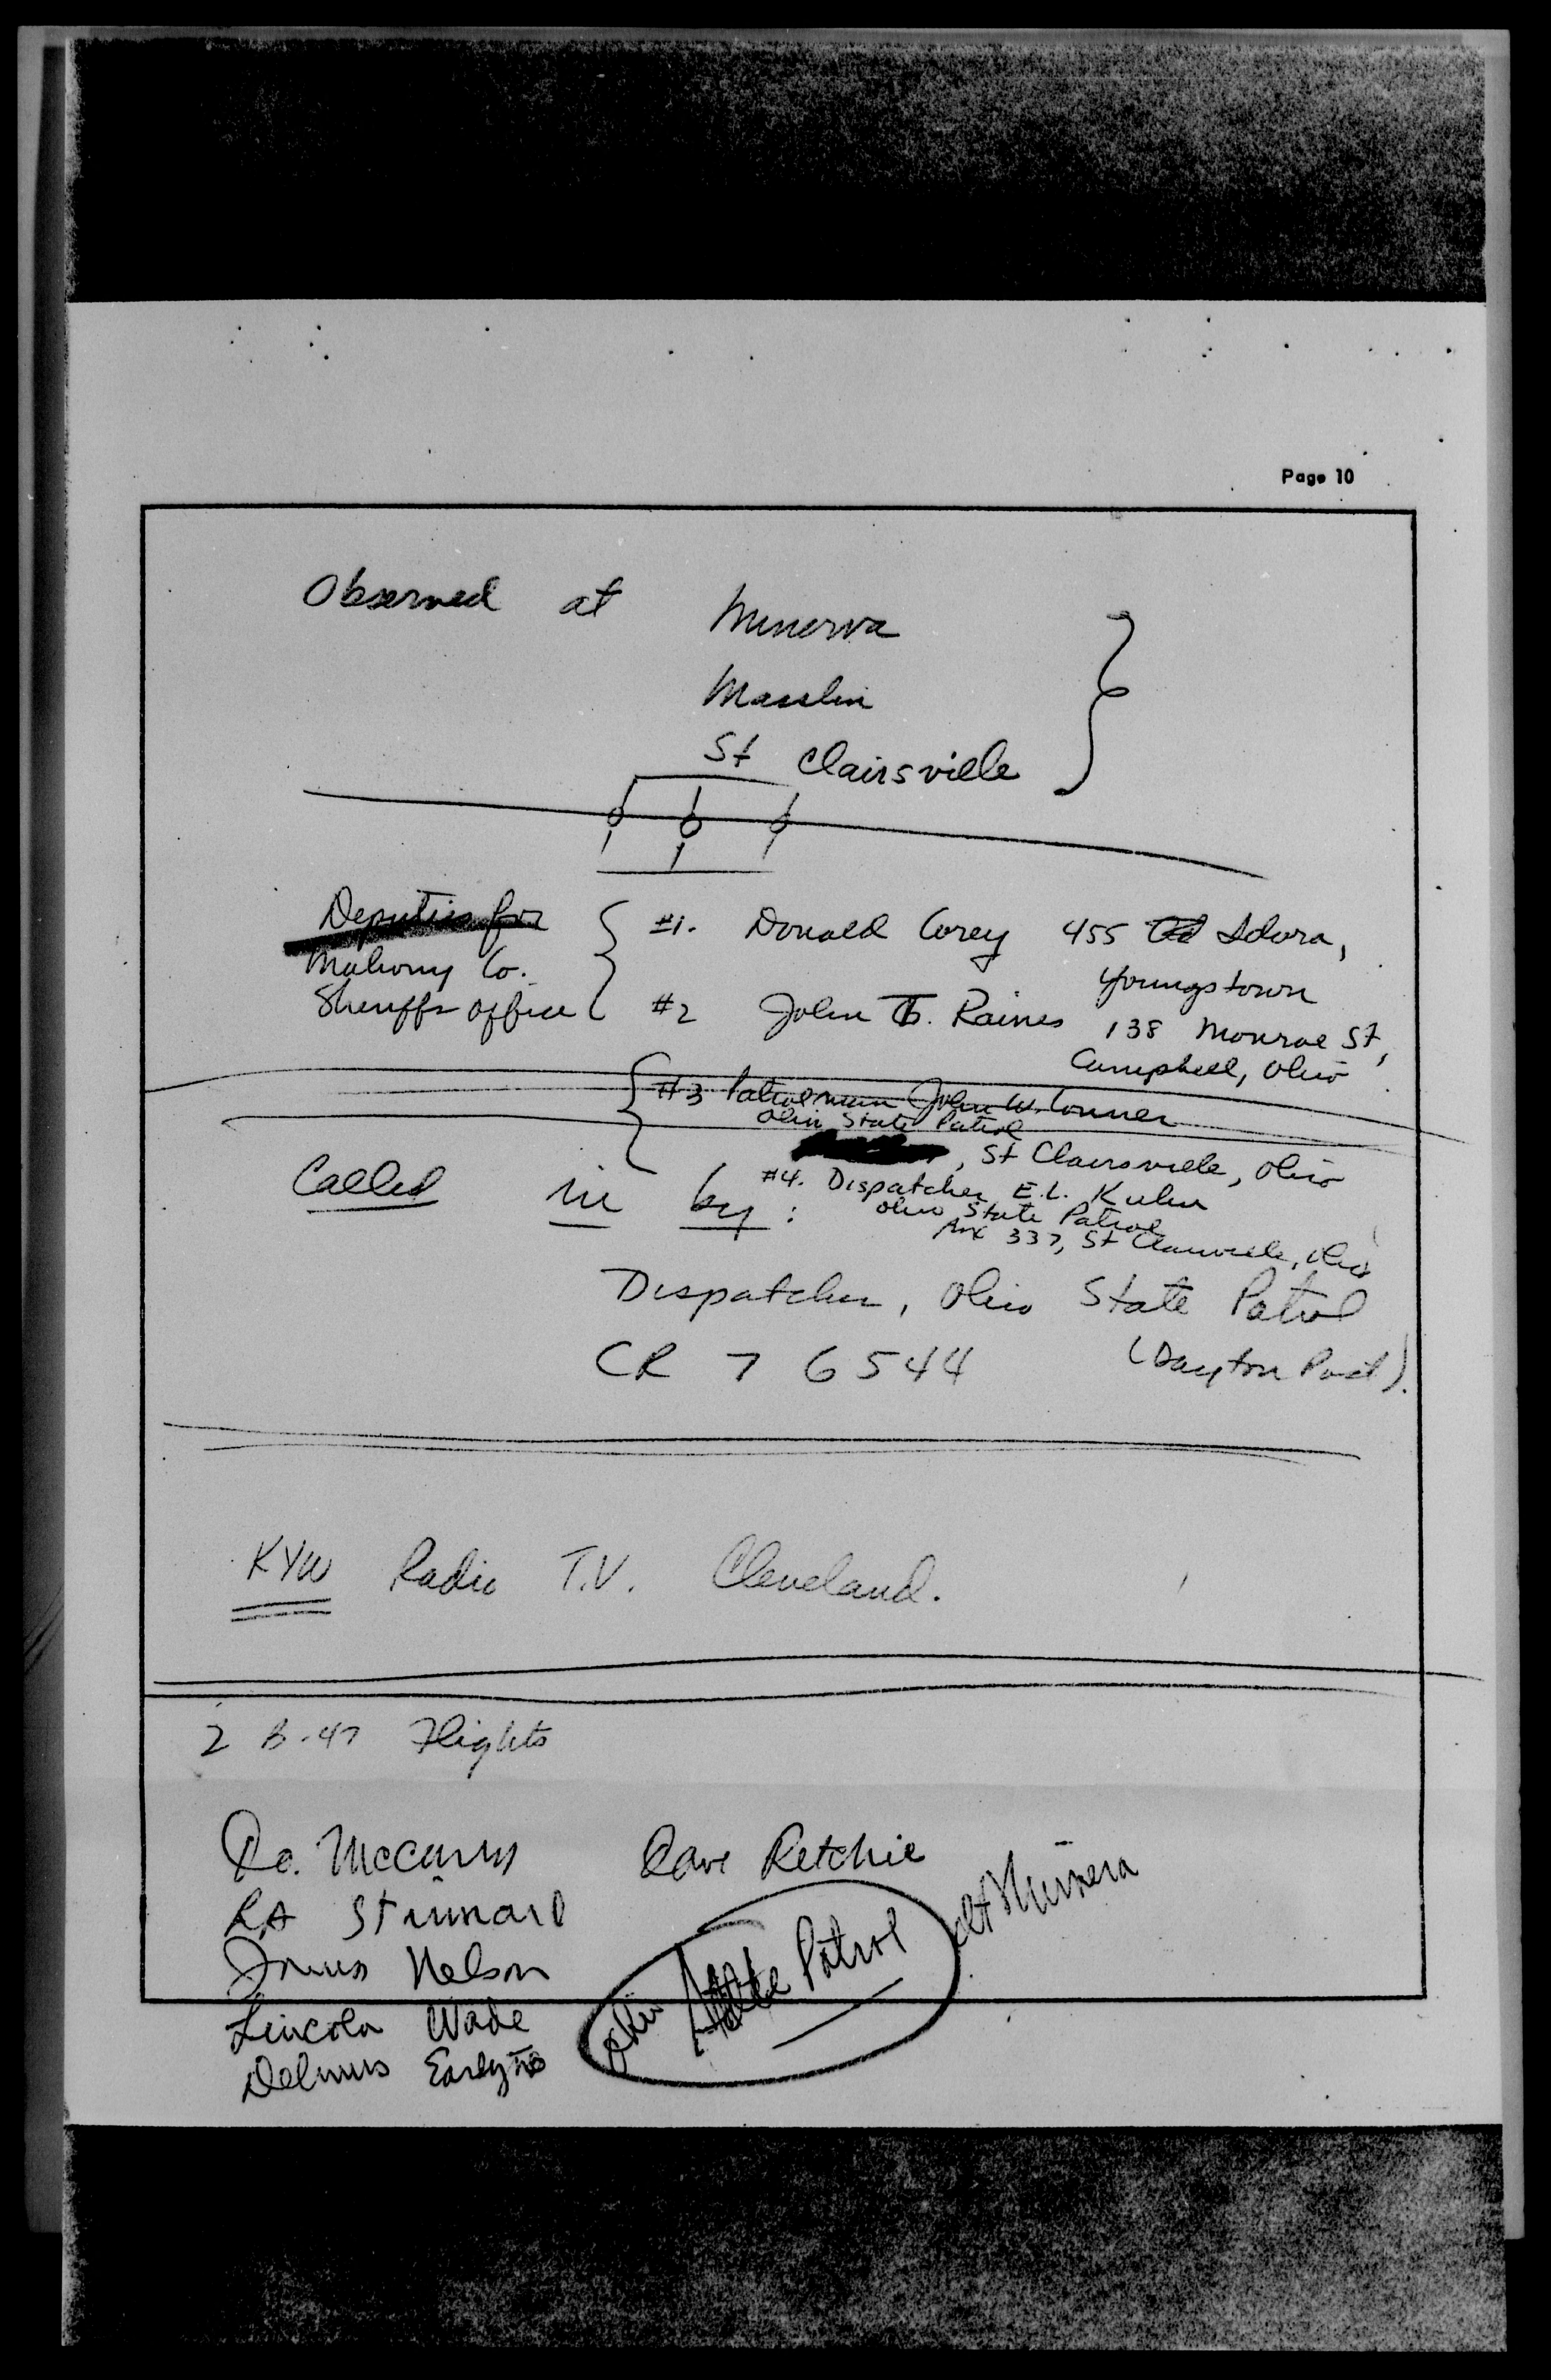 Page 10
Observed at Minerva
Masslin
St Clairsville
Deputies for
Mahony Co.
Sheriffs Office
#1. Donald Corey 455 Idora,
Youngstown
#2 John T. Raines 138 Monroe St,
Campbell, Ohio
#3 Patrolman John W. Conner
Ohio State Patrol
, St Clairsville, Ohio
#4. Dispatcher E.L. Kuhn
Ohio State Patrol
Box 337, St Clairsville, Ohio
Called in by:
Dispatcher, Ohio State Patrol
CR 7 6544 (Dayton Post).
KYW Radio T.V. Cleveland.
2 B-47 Flights
Dave Retchie
RA Stinnard
Nelson
Lincoln Wade
Delmus
Ohio State Patrol at Minerva